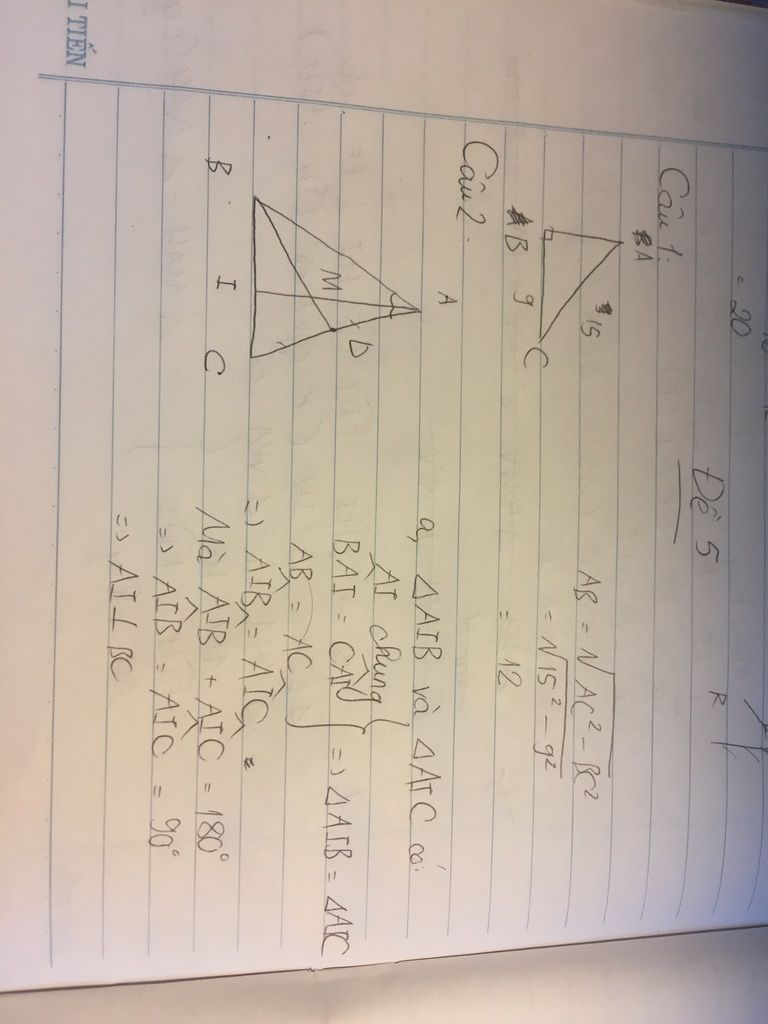 = 20
Đề 5
Câu 1:
A
15
B 9 C
AB = √AC² - BC²
= √15² - 9²
= 12
Câu 2.
A
M D
B I C
a, ΔAIB và ΔAIC có:
AI chung
BAI = CAI } => ΔAIB = ΔAIC
AB = AC
=> AIB = AIC
Mà AIB + AIC = 180°
=> AIB = AIC = 90°
=> AI ⊥ BC
I TIẾN